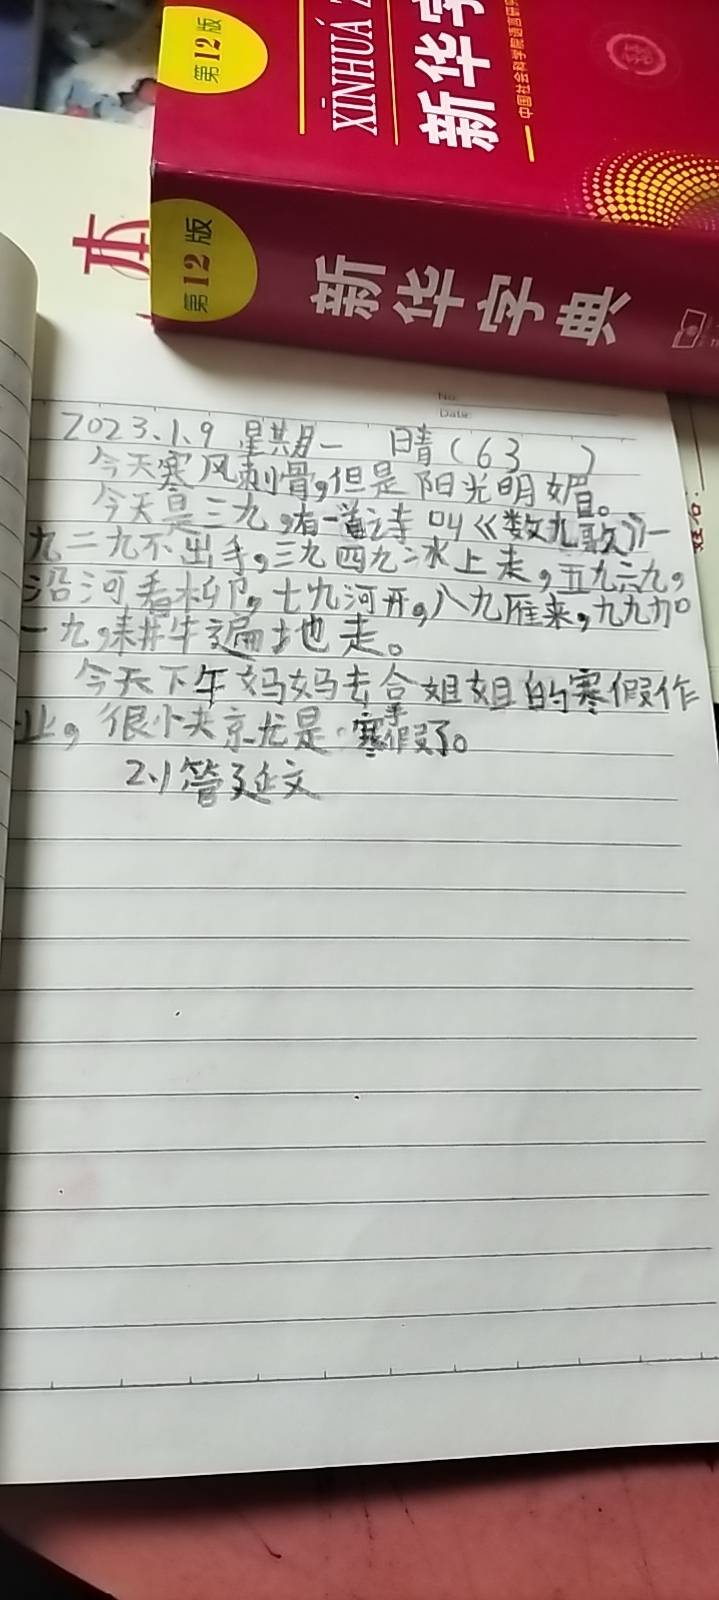 第12版
XĪNHUÁ Z
新华字
中国社会科学院语言研究
第12版
新华字典
本
No:
Date:
姓名:
2023.1.9 星期一 晴(63 )
今天寒风刺骨,但是阳光明媚。
今天是三九,有一首诗叫《数九歌》一
九二九不出手,三九四九冰上走,五九六九,
沿河看柳,七九河开,八九雁来,九九加
一九,耕牛遍地走。
今天下午妈妈去合姐姐的寒假作
业,很小夬京尤是寒假了。
2.1管延文